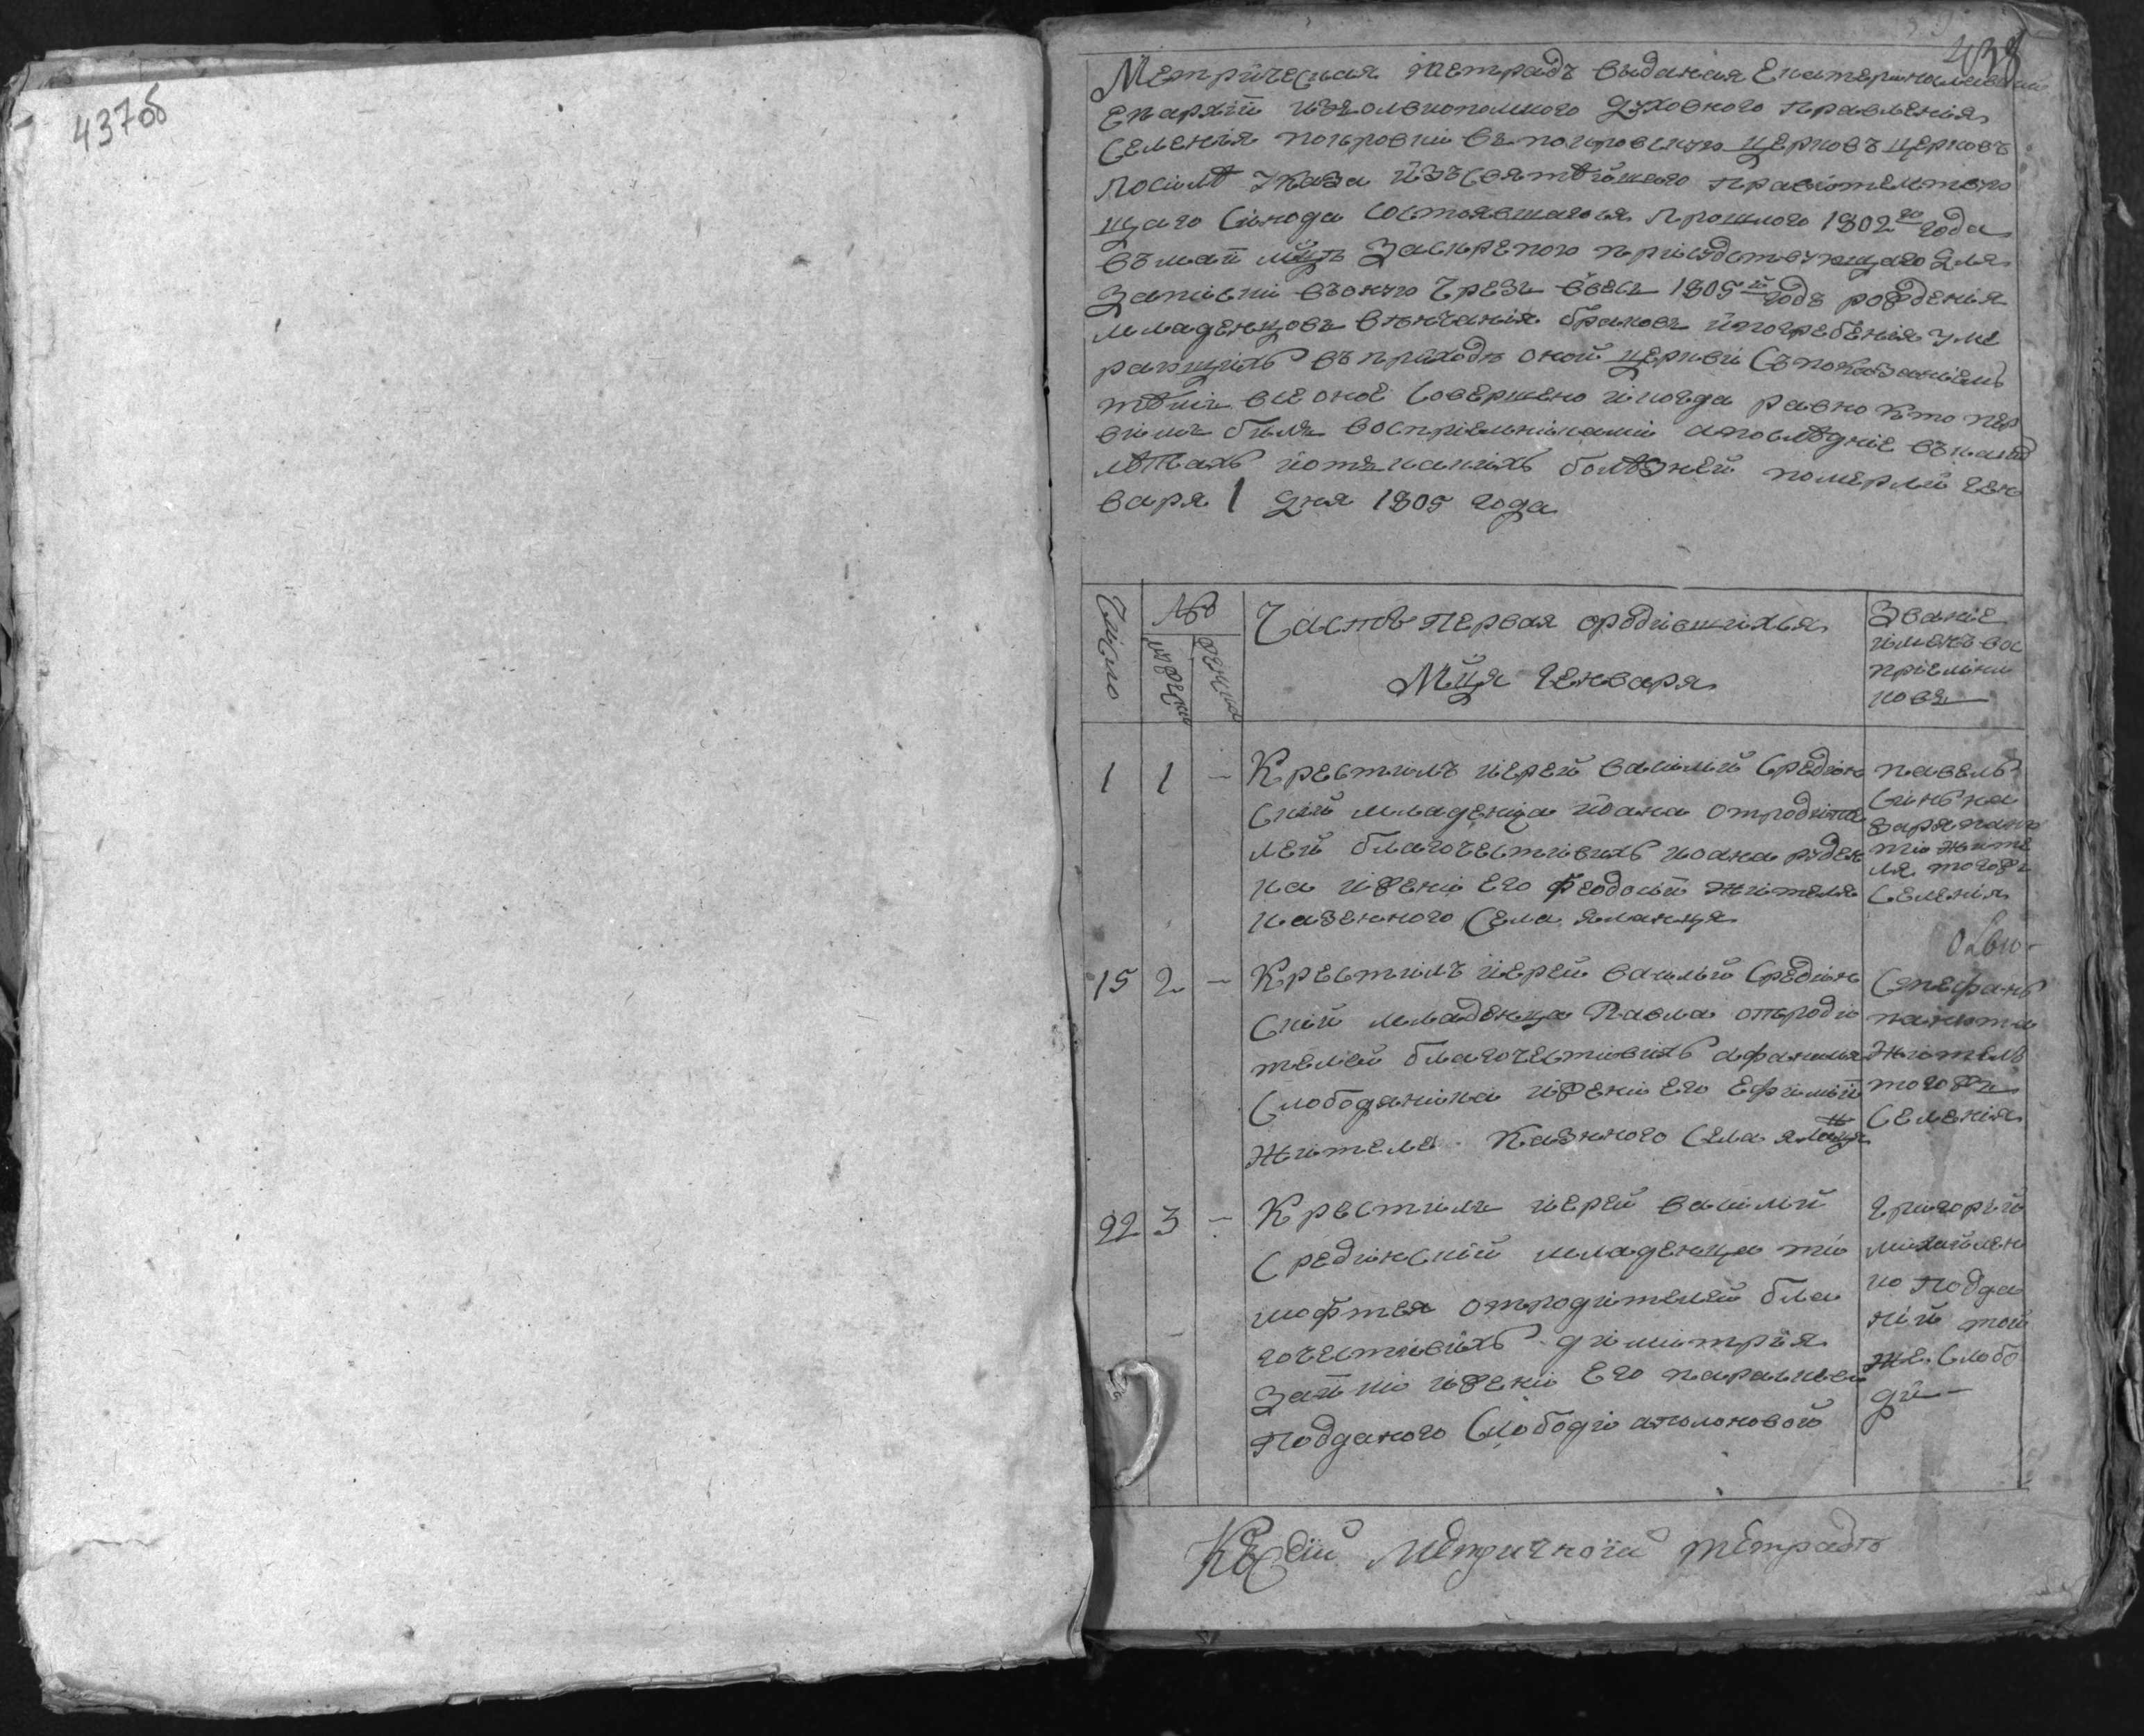 437об
438
Метрическая тетрадъ выданая Екатеринославской
Епархіи изъ олвиополского духовного правленія
селенія покровки въ покровскую церковъ церковъ
посилѣ указа изъ святѣйшаго правителствую
щаго синода состоявшагося прошлого 1802го года
въ маіи мцѣ за скрепого присудствующаго для
записки въ оную чрезъ ввесъ 1805й годъ рожденія
младенцовъ венчанія браковъ и погребенія уме
рающихъ въ приходѣ оной церкви съ показаніемъ
кемъ все оное совершено и когда равно кто пер
вимъ билъ восприемниками а последніе въ каких
лѣтахъ и отъ какихъ болѣзней померли ген
варя 1 дня 1805 года
Число
№
мужеск
женско
Часть первая о родившихся
Мця генваря
Званіе
именъ вос
приемни
ковъ
1 1 — Крестилъ иерей василий Средин
ский младенца иоана от родите
лей благочестивихъ иоана руден
ка и жени его феодосии жителя
казенного села яланця
павелъ
синь на
заря пано
тю жите
ля тогожъ
селенія
15 2 — Крестилъ иерей василий Средин
ский младенца Павла от роди
телей благочестивихъ афанасия
слободяника и жени его Ефимии
жителя казного села яланця
Стефанъ
никита
житель
тогожъ
селенія
22 3 — Крестилъ иерей василий
Срединский младенца ти
мофтея от родителей бла
гочестивихъ димитрія
заики и жени его параскеи
подданого слободи аполоновой
григорий
михайлен
ко подда
ний той
же слобо
ди —
Къ сей метричной тетрадѣ